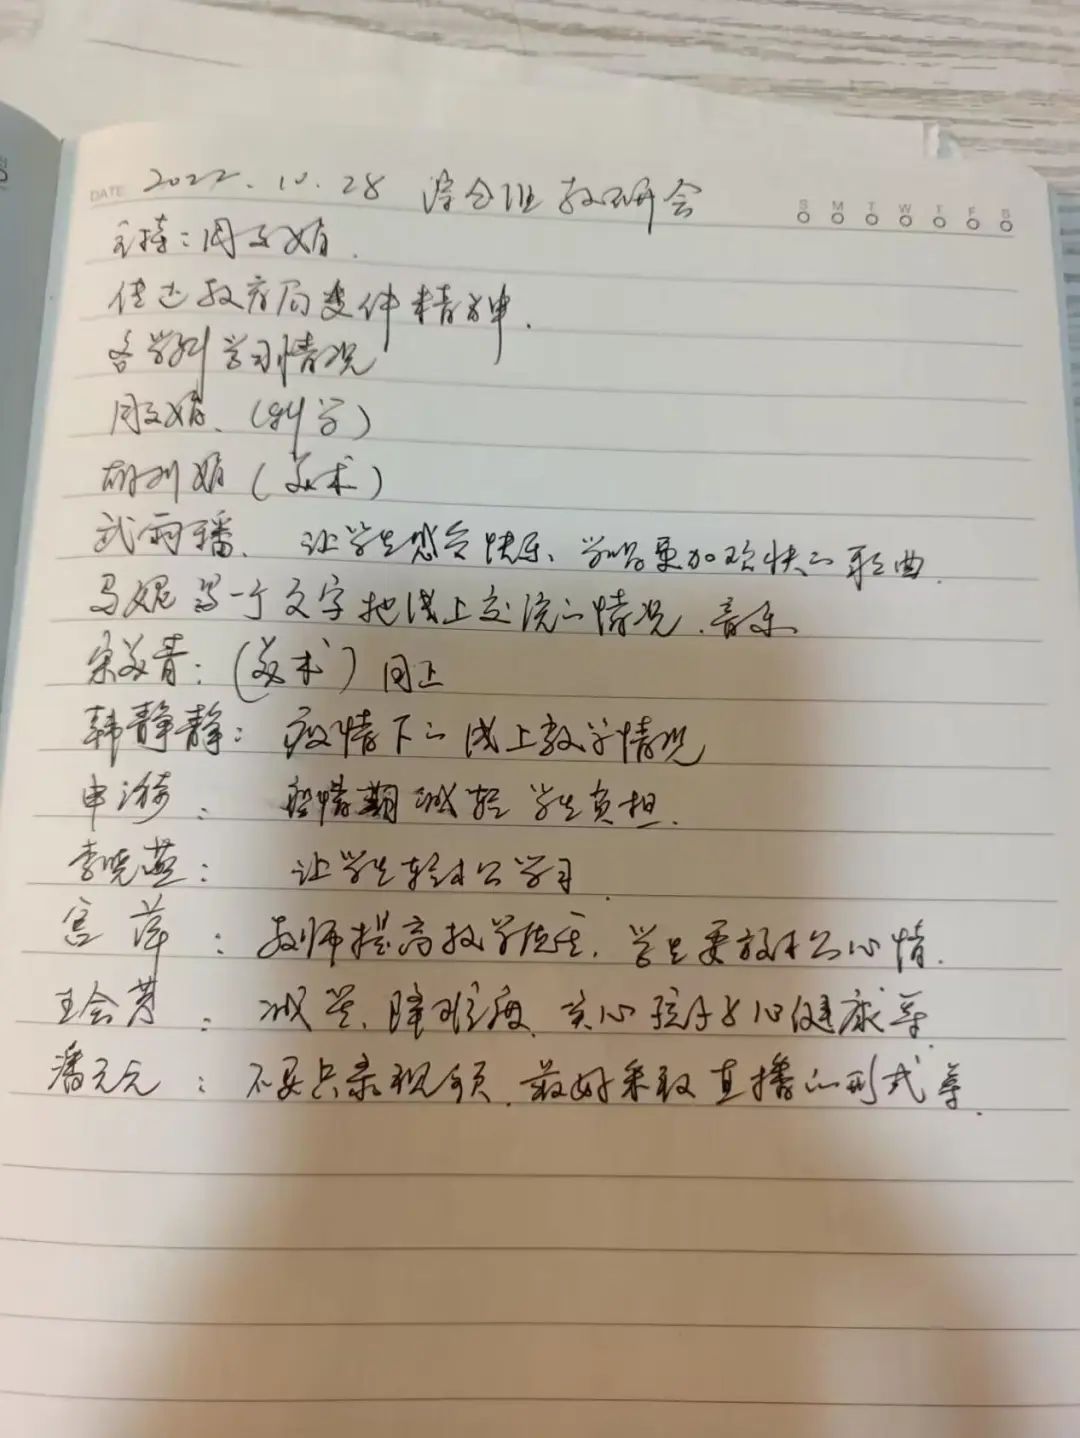 DATE 2022.10.28 综合组教研会
S M T W T F S
主持：周文娟.
传达教育局文件精神.
各学科学习情况
周文娟.（科学）
胡利娟（美术）
武雨璠、让学生感受快乐、学唱更加欢快的歌曲.
马妮 写一个文字把线上交流的情况.音乐
宋美青：（美术）同上
韩静静：疫情下的线上教学情况
申漪： 疫情期减轻学生负担.
李晓燕： 让学生轻松学习.
宫萍：教师提高教学质量.学生要放松心情.
王会芳：减量.降难度.关心孩子身心健康等.
潘元元：不要只录视频.最好采取直播的形式等.